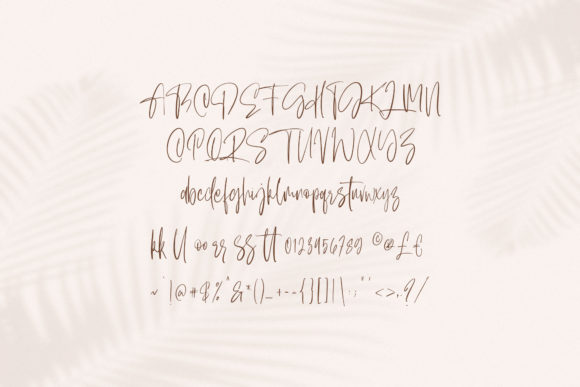 ABCDEFGHIJKLMN
OPQRSTUVWXYZ
abcdefghijklmnopqrstuvwxyz
kk ll oo rr ss tt 0123456789 © @ £ €
~ ` ! @ # $ % ^ & * ( ) _ + - = { } [ ] | \ : ; " ' < > , . ? /